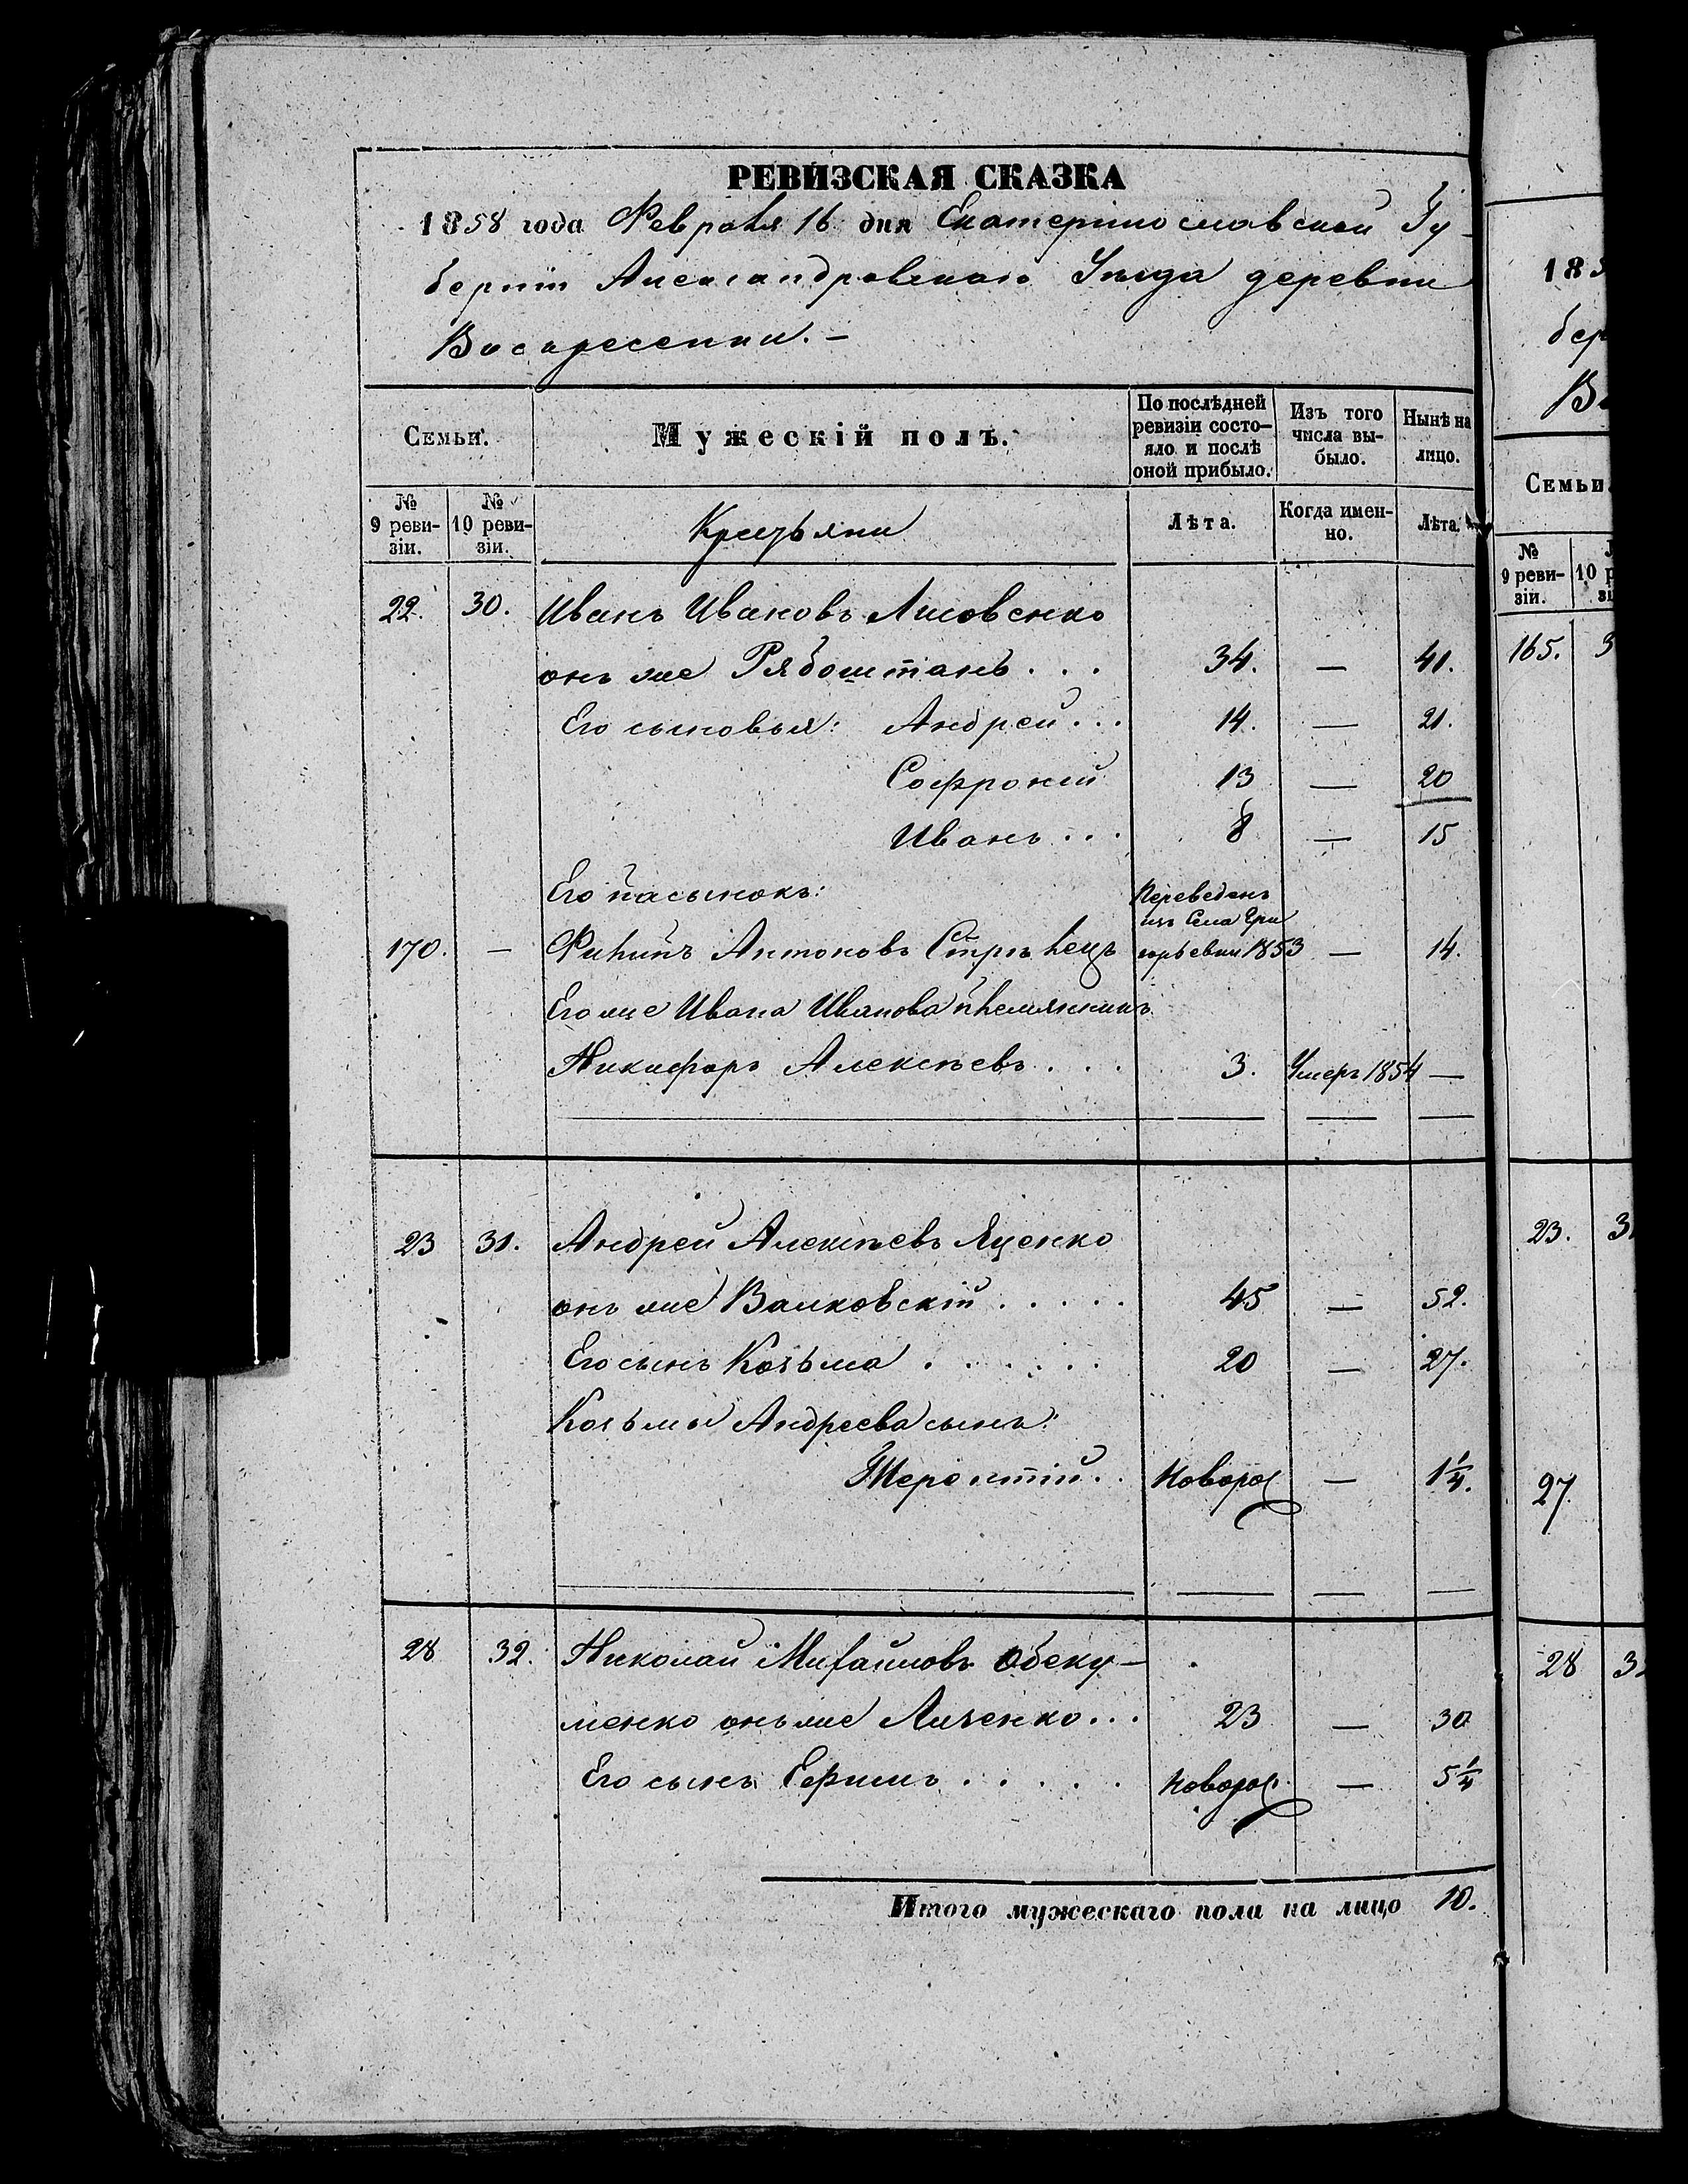 РЕВИЗСКАЯ СКАЗКА
1858 года Февраля 16 дня Екатеринославской Гу-
берніи Александровскаго Уѣзда деревни
Воскресенки. –
Семьи.
Мужескій полъ.
По послѣдней ревизіи состо-яло и послѣ оной прибыло.
Изъ того числа вы-было.
Нынѣ на лицо.
№ 9 реви-зіи.
№ 10 реви-зіи.
Крестьяни
Лѣта.
Когда имен-но.
Лѣта.
22. 30. Иванъ Ивановъ Лисовенко
онъ же Рябоштанъ . . . 34. — 41.
Его сыновья: Андрей . . . 14. — 21.
Софроній 13 — 20
Иванъ . . . 8 — 15
Его пасынокъ: Переведенъ
изъ Села Гри
170. — Филипъ Антоновъ Стрѣлецъ горьевки 1853 — 14.
Его же Ивана Иванова племянникъ
Никифоръ Алексѣевъ . . . 3. Умеръ 1854 —
23 31. Андрей Алексѣевъ Яценко
онъ же Валковскій . . . . . 45 — 52.
Его сынъ Козьма . . . . . . 20 — 27.
Козьмы Андреева сынъ:
Терентій . . Новорож — 1 1/4.
28 32. Николай Михайловъ Обеку-
менко онъ же Личенко . . . 23 — 30
Его сынъ Ефимъ . . . . . Новорож. — 5 1/4
Итого мужескаго пола на лицо 10.
185
бер
Семьи.
№ 9 реви-зіи.
10 р
165. 3
23. 3
27.
28 3